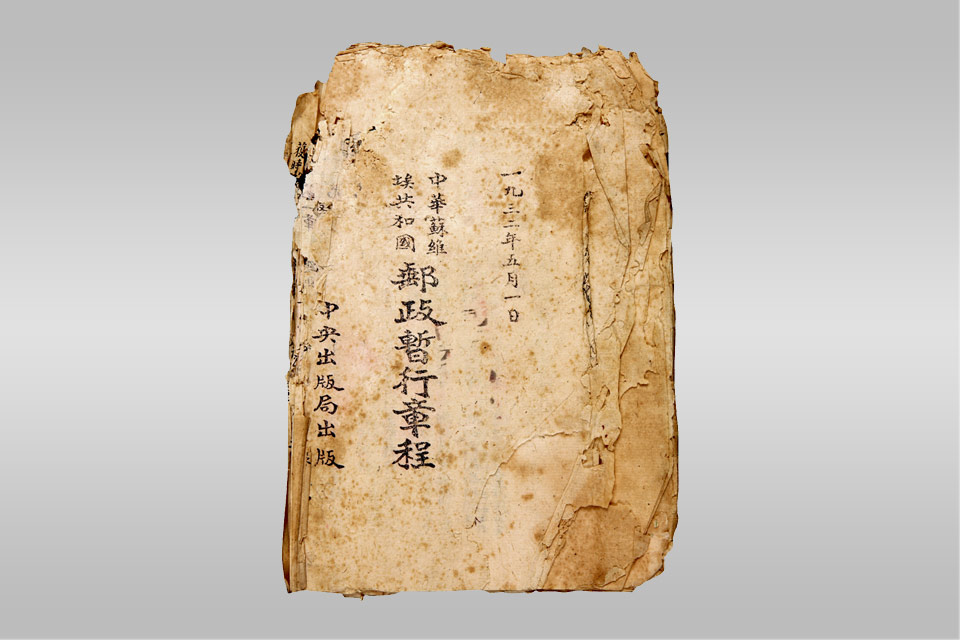 一九三二年五月一日
中華蘇維
埃共和國
郵政暫行章程
中央出版局出版